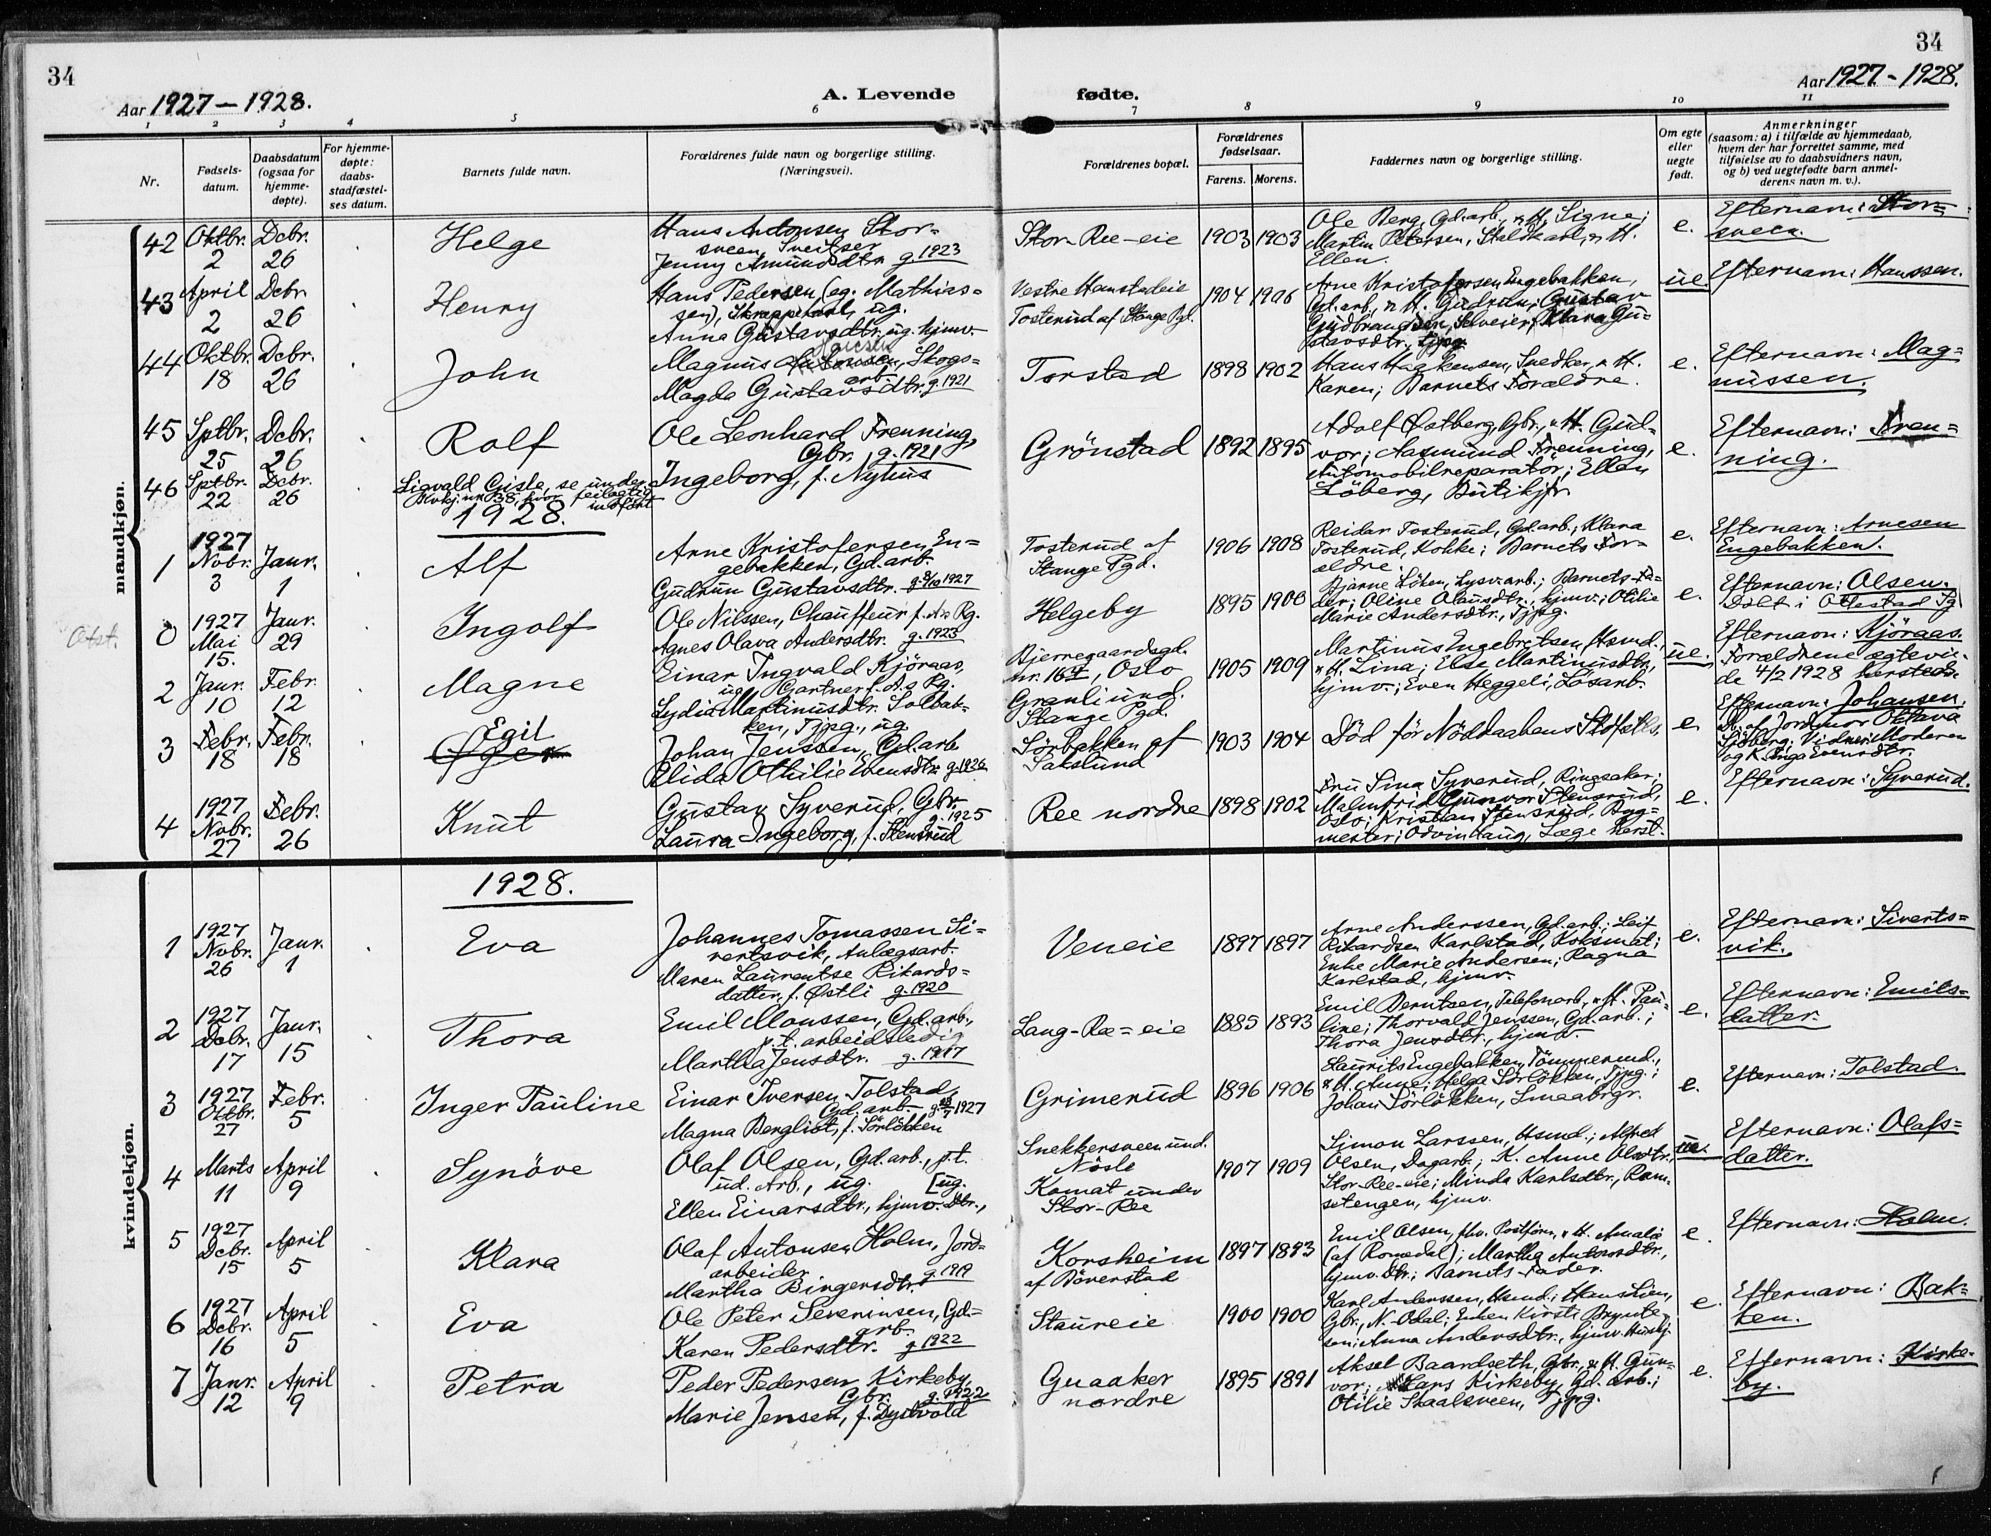 34
34
Aar 1927 – 1928.
A. Levende
fødte.
Aar 1927 – 1928.
1 2 3 4 5 6 7 8 9 10 11
Nr.
Fødsels-
datum.
Daabsdatum
(ogsaa for
hjemme-
døpte).
For hjemme-
døpte:
daabs-
stadfæstel-
ses datum.
Barnets fulde navn.
Forældrenes fulde navn og borgerlige stilling.
(Næringsvei).
Forældrenes bopæl.
Forældrenes
fødselsaar.
Farens. Morens.
Faddernes navn og borgerlige stilling.
Om egte
eller
uegte
født.
Anmerkninger
(saasom: a) i tilfælde av hjemmedaab,
hvem der har forrettet samme, med
tilføielse av to daabsvidners navn,
og b) ved uegtefødte barn anmel-
derens navn m. v.).
mandkjøn.
42
Oktbr.
2
Dcbr.
26
Helge
Hans Antonsen Stor-
sveen, Sveitser
Jenny Amundsdtr. g. 1923
Stor-Ree-eie
1903 1903
Ole Berg, Gd.arb., & H. Signe;
Martin Petersen, Staldkarl, & H.
Ellen.
e.
Efternavn: Stor-
sveen.
43
April
2
Dcbr.
26
Henry
Hans Pedersen (eg. Mathias-
sen), Skræppekarl, ug.
Anna Gustavsdtr., ug. hjmv.
Vestre Hamstadeie
Tosterud af Stange Pgl.
1904 1906
Arne Kristofersen Engebakken,
Gd.arb., & H. Gudrun; Gustav
Gudbrandsen, Selveier; Klara Gu-
stavsdtr., Tjpg.
ue.
Efternavn: Hanssen.
44
Oktbr.
18
Dcbr.
26
John
Magnus Skogs-
arb.
Magda Gustavsdtr. g. 1921
Torstad
1898 1902
Hans Haakensen, Snedker, & H.
Karen; Barnets Forældre.
e.
Efternavn: Mag-
nussen.
45
Sptbr.
25
Dcbr.
26
Rolf
Ole Leonhard Frenning,
Gbr. g. 1921
Ingeborg, f. Nyhus
Grönstad
1892 1895
Adolf Østberg, Gbr., & H. Gud-
vor; Aasmund Frenning,
Automobilreparatör; Ellen
Löberg, Butikjfr.
e.
Efternavn: Fren-
ning.
46
Sptbr.
22
Dcbr.
26
Sigvald Gisle, se under
Kvkj. nr. 38, hvor feilagtig
indfört
1928.
1
1927
Nvbr.
3
Janr.
1
Alf
Arne Kristofersen En-
gebakken, Gd.arb.
Gudrun Gustavsdtr. g. 9/10 1927
Tosterud af
Stange Pgd.
1906 1908
Reidar Tosterud, Gd.arb.; Klara
Tosterud, Kokke; Barnets For-
ældre.
e.
Efternavn: Arnesen
Engebakken.
Otst.
0
1927
Mai
15.
Janr.
29
Ingolf
Ole Nilssen, Chauffeur f. As Pg.
Agnes Olava Andersdtr. g. 1923
Helgeby
1895 1900
Bjarne Löken, Lysv.arb.; Barnets Fa-
der; Oline Olausdtr., hjmv.; Otilie
Marie Andersdtr., Tjpg.
e.
Efternavn: Olsen.
Döbt i Ottestad Pg.
2
Janr.
10
Febr.
12
Magne
Einar Ingvald Kjöraas,
ug., Gartner f. As Pg.
Lydia Martinusdtr. Solbak-
ken, Tjpg., ug.
Bjerregaardsgd.
nr. 16 II, Oslo
Granli und.
Stange Pgd.
1905 1909
Martinus Engebretsen, Hsmd.
& H. Lina; Else Martinusdtr.,
hjmv.; Even Heggeli, Lösarb.
ue.
Efternavn: Kjöraas.
Forældrene ægtevie-
de 4/2 1928 herstedc.
3
Febr.
18
Febr.
18
Egil
Johan Jenssen, Gd.arb.
Elida Othilie Evensdtr. g. 1926
Sörbakken af
Sakslund
1903 1904
Död för Nöddaabens Stdfæsts.
e.
Efternavn: Johansen.
Db. af Jordmor Oktava
Sjöberg; Vidner: Moderen
og K. Inga Evensdtr.
4
1927
Nvbr.
27
Febr.
26
Knut
Gustav Syverud, Gbr.
g. 1925
Laura Ingeborg, f. Stensrud
Ree nordre
1898 1902
Fru Lina Syverud, Ringsaker;
Malmfrid Gunvor Stensrud,
Oslo; Kristian Stensrud, Byg-
mester; Odvin Haug, Læge herst.
e.
Efternavn: Syverud.
kvindekjøn.
1928.
1
1927
Nvbr.
26
Janr.
1
Eva
Johannes Tomassen Si-
vertsvik, Anlægsarb.
Maren Laurentse Rikards-
datter, f. Østli g. 1920
Veneie
1897 1897
Arne Anderssen, Gd.arb.; Leif
Rikardsen Karlstad, Koksmat;
Enke Marie Andersen; Ragna
Karlstad, hjmv.
e.
Efternavn: Siverts-
vik.
2
1927
Dcbr.
17
Janr.
15
Thora
Emil Monssen, Gd.arb.,
p.t. arbeidsledig
Martha Jensdtr. g. 1917
Lang-Ree-eie
1885 1893
Emil Berntsen, Telefonarb., & H. Pau-
line; Thorvald Jenssen, Gd.arb.;
Thora Jensdtr., hjmv.
e.
Efternavn: Emils-
datter.
3
1927
Oktbr.
27
Febr.
5
Inger Pauline
Einar Iversen Tolstad,
Gd.arb. 1927
Magna Bergliot, f. Sörlökken
Grimerud
1896 1906
Laurits Engebakken, Tömmermd.,
& H. Anne; Helga Sörlökken, Tjpg.;
Johan Sörlökken, Smaabrgr.
e.
Efternavn: Tolstad.
4
Marts
11
April
9
Synöve
Olaf Olsen, Gd.arb., p.t.
ud. Arb., ug. [ug.
Ellen Einarsdtr., hjmv. Dtr.,
Snekkersveen und.
Nösle
Komat under
Stor-Ree
1907 1909
Simon Larssen, Hsmd.; Alfred
Olsen, Dagarb.; K. Anne Olsdtr.,
Stor-Ree-eie; Minda Karlsdtr., Rom-
setengen, hjmv.
ue.
Efternavn: Olafs-
datter.
5
1927
Dcbr.
15
April
5
Klara
Olaf Antonsen Holm, Jord-
arbeider
Martha Bingersdtr. g. 1919
Korsheim
af Böverstad
1897 1893
Emil Olsen, fhv. Postförer, & H. Amalie
(af Romedal); Martha Antonsdtr.,
hjmv. Dtr.; Barnets Fader.
e.
Efternavn: Holm.
6
1927
Dcbr.
16
April
5
Eva
Ole Peter Severinsen, Gd.-
arb.
Karen Pedersdtr. g. 1922
Staureie
1900 1900
Karl Anderssen, Hsmd.; Hans Lien,
Gbr., N.-Odal; Enken Kirsti Brynte-
sen; Anna Andersdtr., hjmv. Hustj.
e.
Efternavn: Bak-
ken.
7
Janr.
12
April
9
Petra
Peder Pedersen Kirkeby,
Gbr. g. 1922
Marie Jensen, f. Dystvold
Guaaker
nordre
1895 1891
Aksel Baardseth, Gbr., & H. Gun-
vor; Lars Kirkeby, Gd.arb.;
Otilie Skaalsveen, Tjpg.
e.
Efternavn: Kirke-
by.